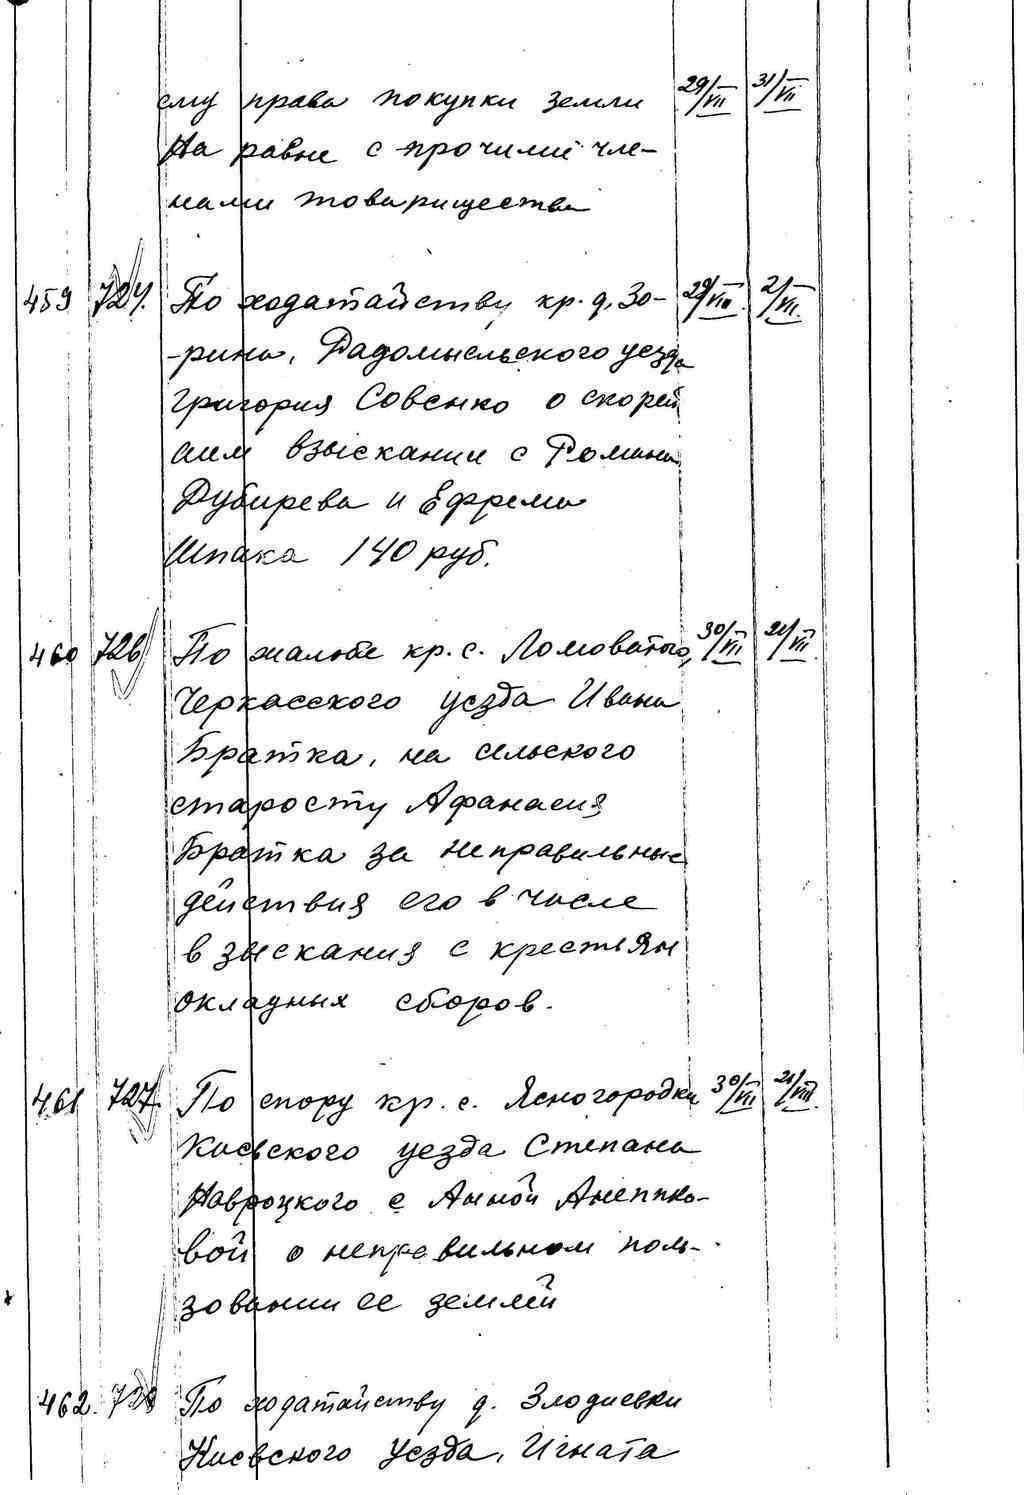 ему права покупки земли 29/VII 31/VII
На равне с прочими чле-
нами товарищества
459 724. По ходатайству кр. д. Зо- 29/VII 2/VIII.
-рина, Радомысльского уезда
Григория Совенко о скорей
шим взыскании с Романа
Дубирева и Ефрема
Шпака 140 руб.
460 726 По жалобе кр. с. Ломоватого, 30/VII 21/VIII.
Черкасского уезда Ивана
Братка, на сельского
старосту Афанасия
Братка за неправильные
действия его в числе
взыскания с крестьян
окладных сборов.
461 727. По спору кр. с. Ясногородки 30/VII 21/VIII.
Киевского уезда Степана
Навроцкого с Анной
вой о неправильном поль-
зовании ее землей
462. По ходатайству д. Злодиевки
Киевского Уезда, Игната